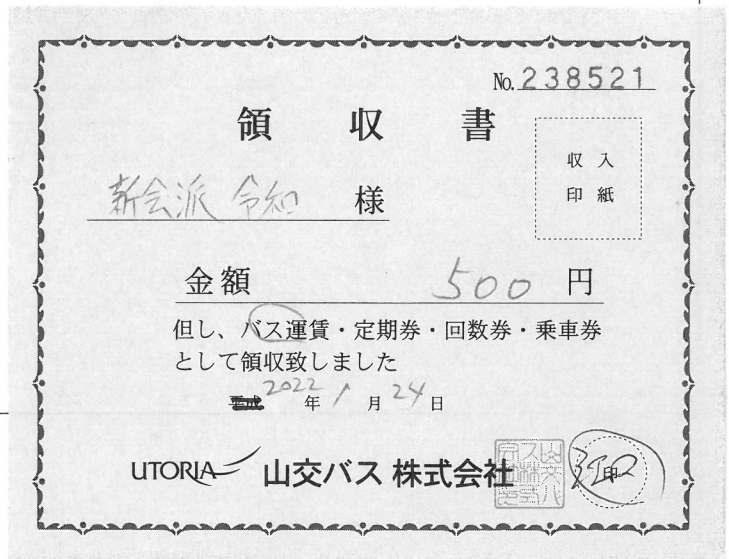 No. 238521
領収書
収入
印紙
新会派 令和 様
金額 500 円
但し、バス運賃・定期券・回数券・乗車券
として領収致しました
平成 2022 年 1 月 24 日
UTORIA 山交バス 株式会社
印